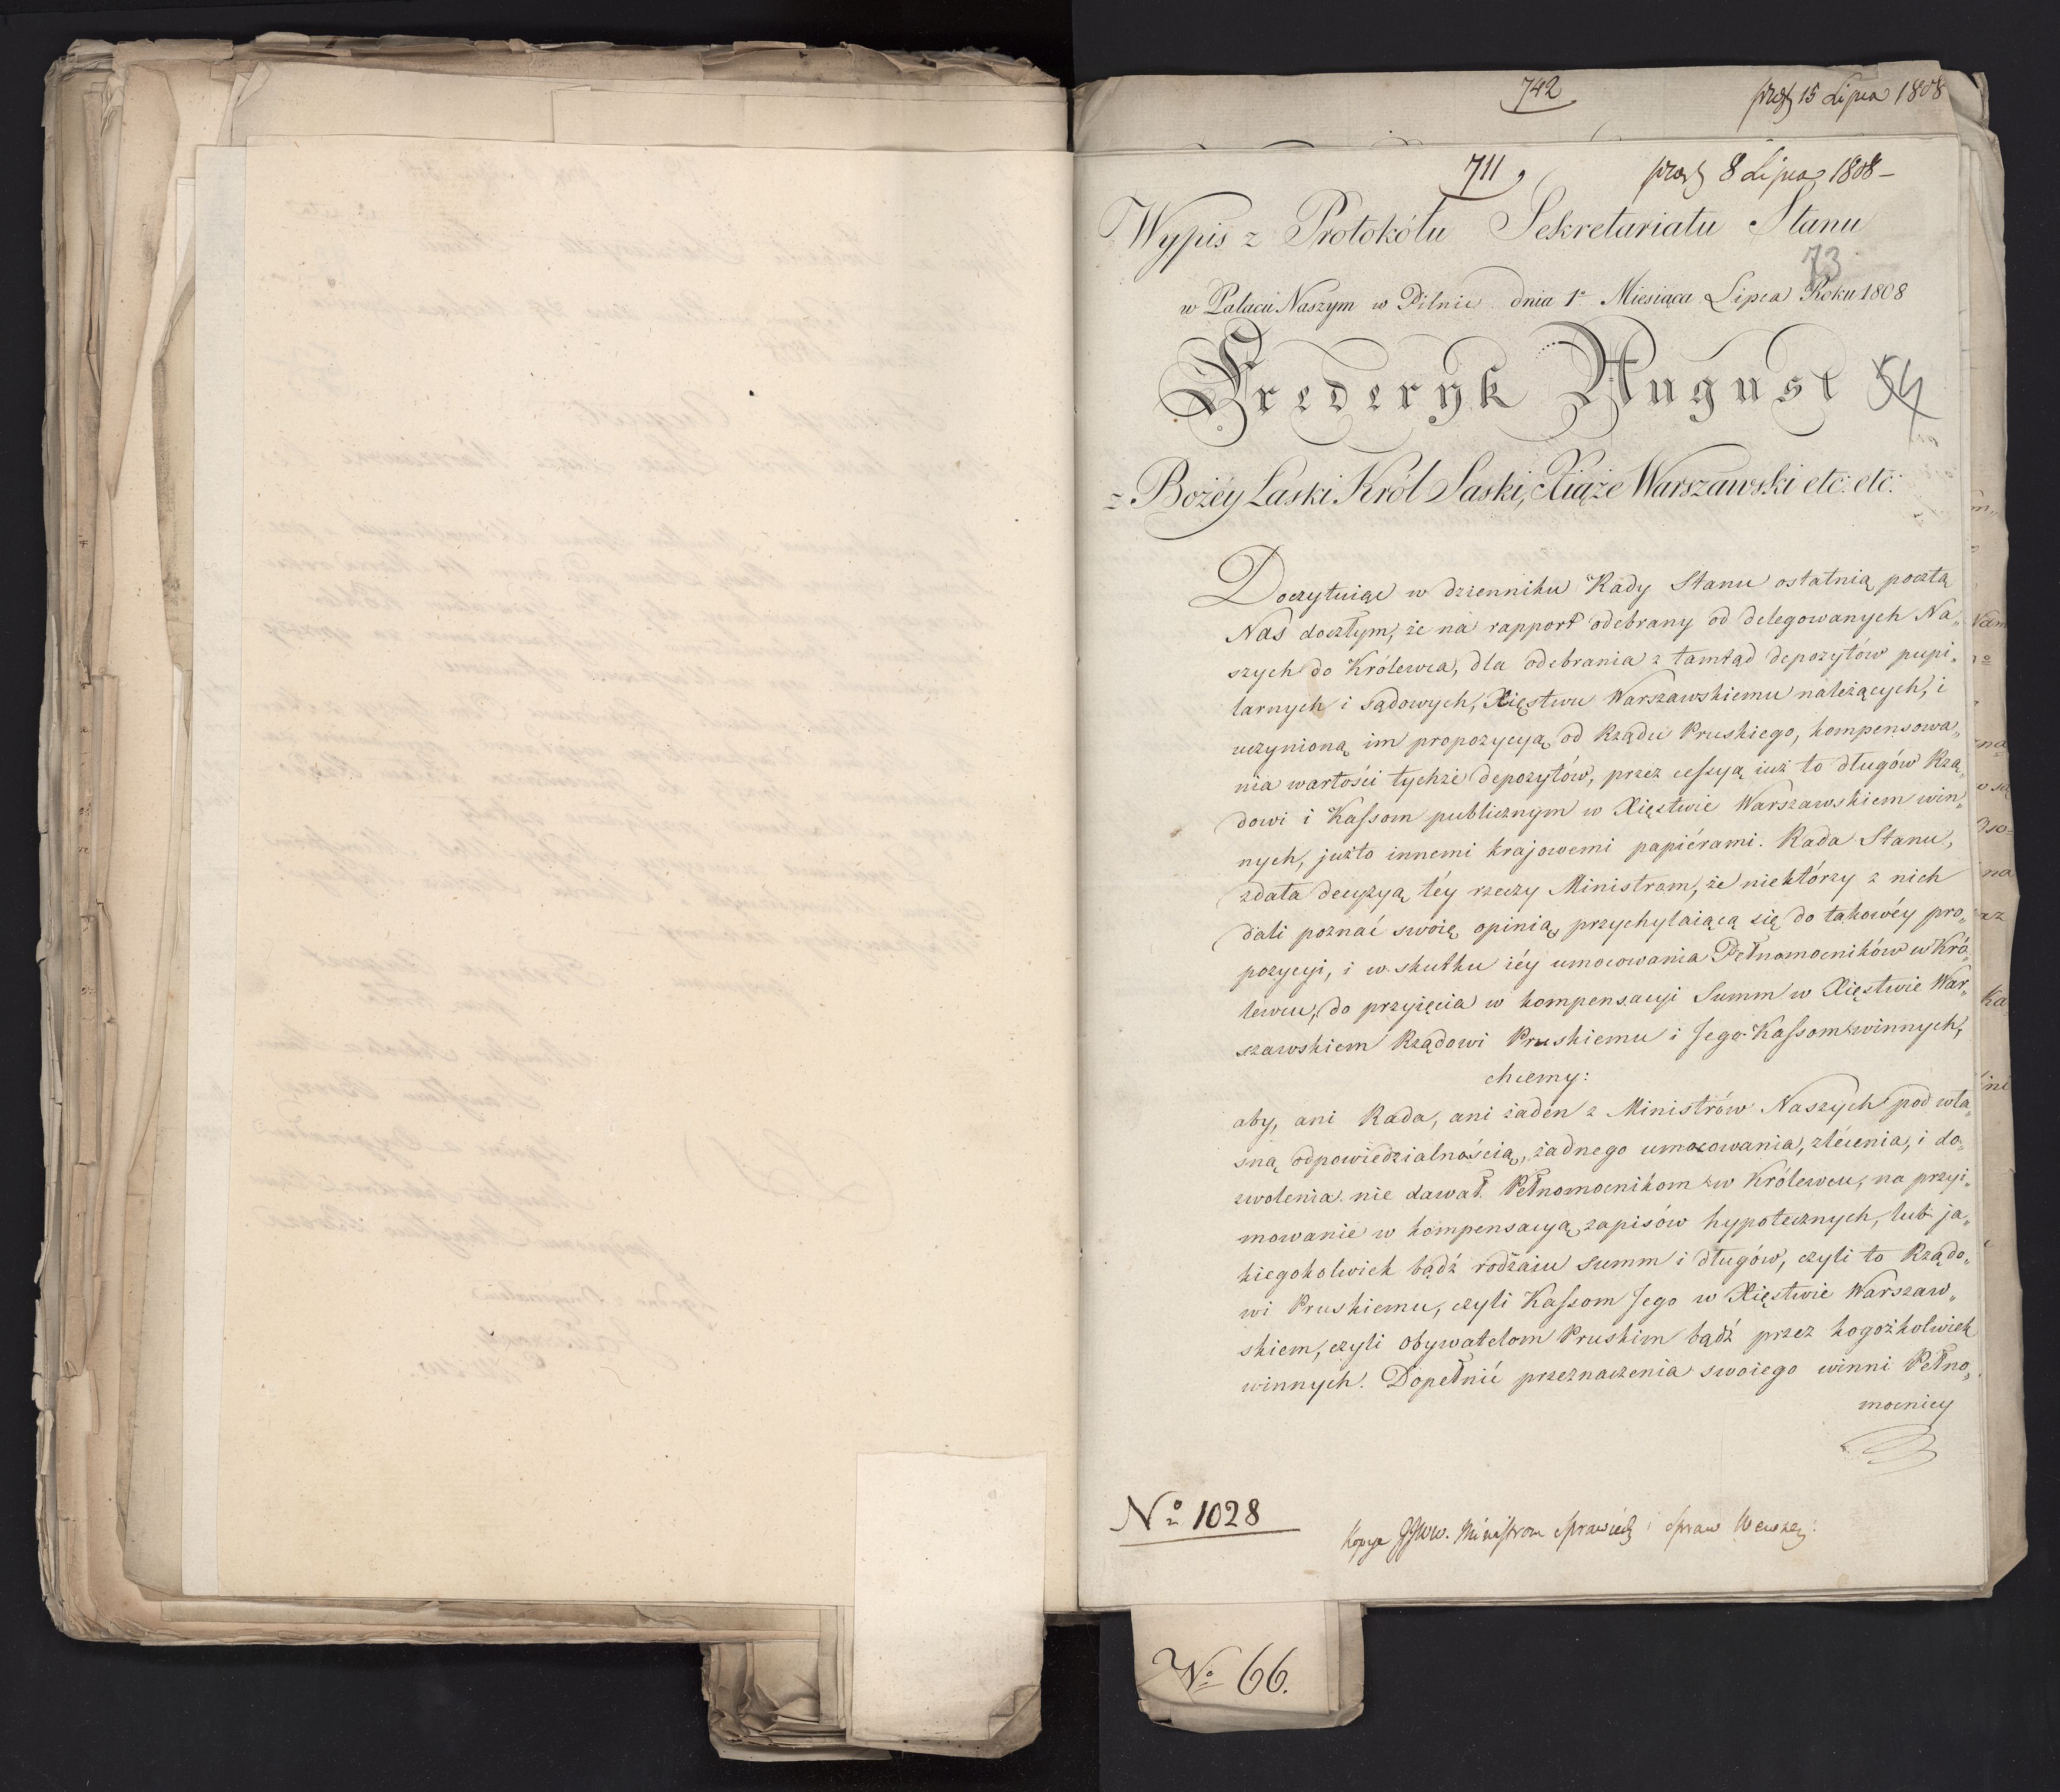 742
15 Lipca 1808
711
8 Lipca 1808
Wypis z Protokółu Sekretariatu Stanu
73
w Pałacu Naszym w Pilnic dnia 1º Miesiąca Lipca Roku 1808
Frederyk August
54
z Bożéy Łaski Król Saski, Xiąże Warszawski etc: etc:
Doczytuiąc w dzienniku Rady Stanu ostatnią pocztą
Nas doszłym, że na rapport odebrany od delegowanych Na„
szych do Królewca, dla odebrania z tamtąd depozytów pupi„
larnych i sądowych, Xięstwu Warszawskiemu należących, i
uczynioną im propozycyą od Rządu Pruskiego, kompensowa„
nia wartości tychże depozytów, przez cessyą iuż to długów Rzą„
dowi i Kassom publicznym w Xięstwie Warszawskiem win„
nych, już to innemi krajowemi papiérami. Rada Stanu,
zdała decyzyą téy rzeczy Ministrom, że niektórzy z nich
dali poznać swoię opinią, przychylaiącą się do takowéy pro„
pozycyi, i w skutku iéy umocowania Pełnomocników w Kró„
lewcu, do przyięcia w kompensacyi Summ w Xięstwie War„
szawskiem Rządowi Pruskiemu i Jego Kassom winnych,
chcemy:
aby, ani Rada, ani żaden z Ministrów Naszych pod wła„
sną odpowiedzialnością, żadnego umocowania, zlécenia, i do„
zwolenia nie dawał Pełnomocnikom w Królewcu, na przyi„
mowanie w kompensacyą zapisów hypotecznych, lub ja„
kiegokolwiek bądź rodzaiu summ i długów, czyli to Rządo„
wi Pruskiemu, czyli Kassom Jego w Xięstwie Warszaw„
skiem, czyli Obywatelom Pruskim bądź przez kogożkolwiek
winnych. Dopełnić przeznaczenia swoiego winni Pełno„
mocnicy
Nº 1028
Kopye JJWW. Ministrom Sprawiedl i Spraw Wewnęz:
Nº 66.